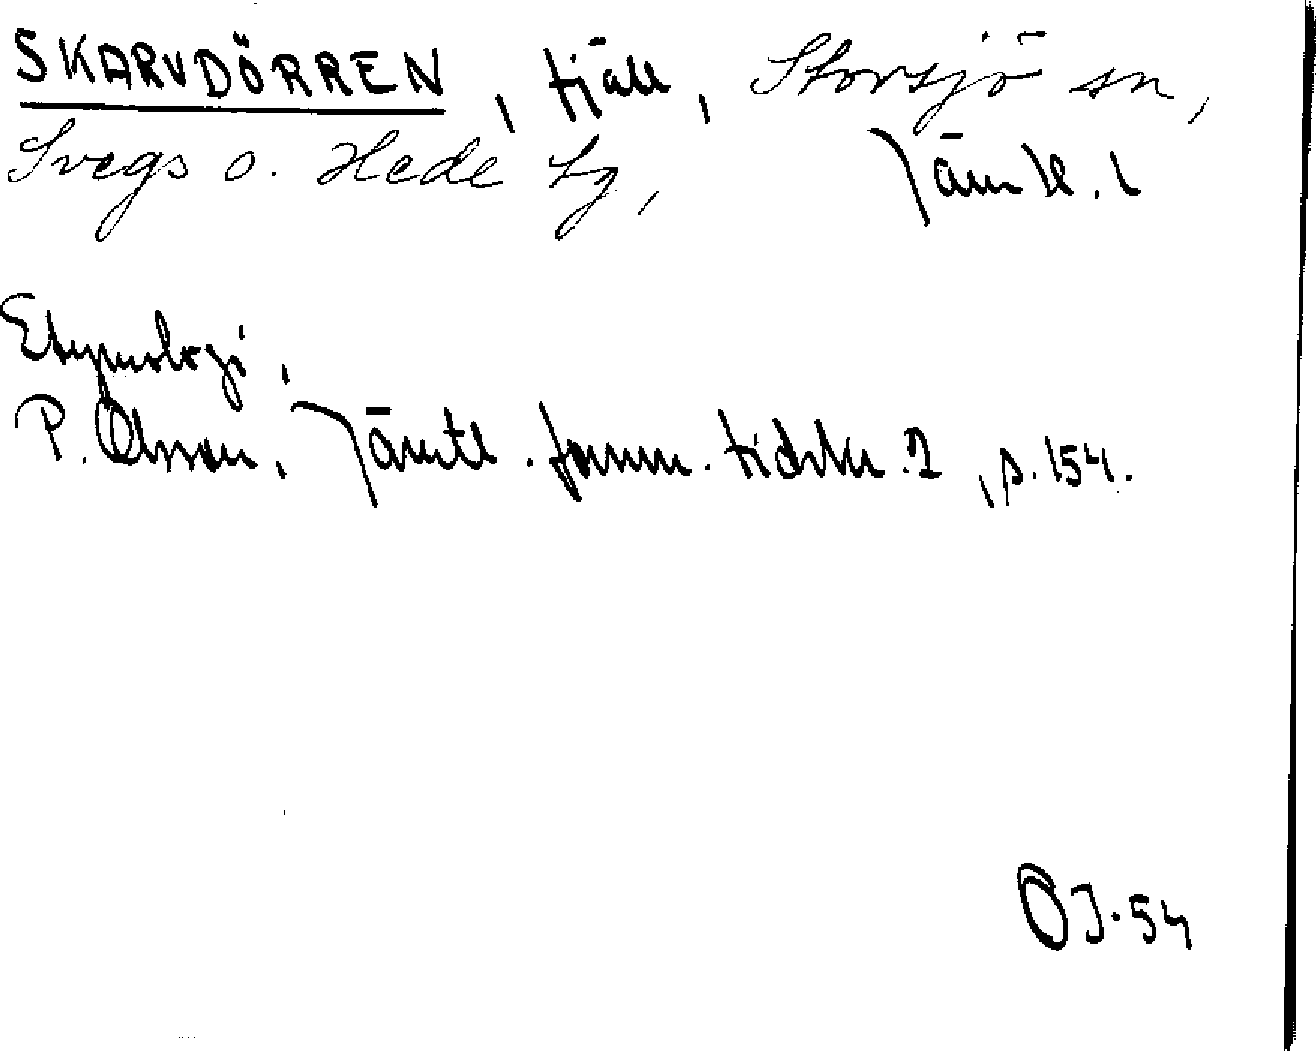 SKARVDÖRREN, fjäll, Storsjö sn,
Svegs o. Hede tg, Jämtl. l
Etymologi,
P. Olsson, Jämtl. fornm. tidskr. 2, s. 154.
OJ. 54